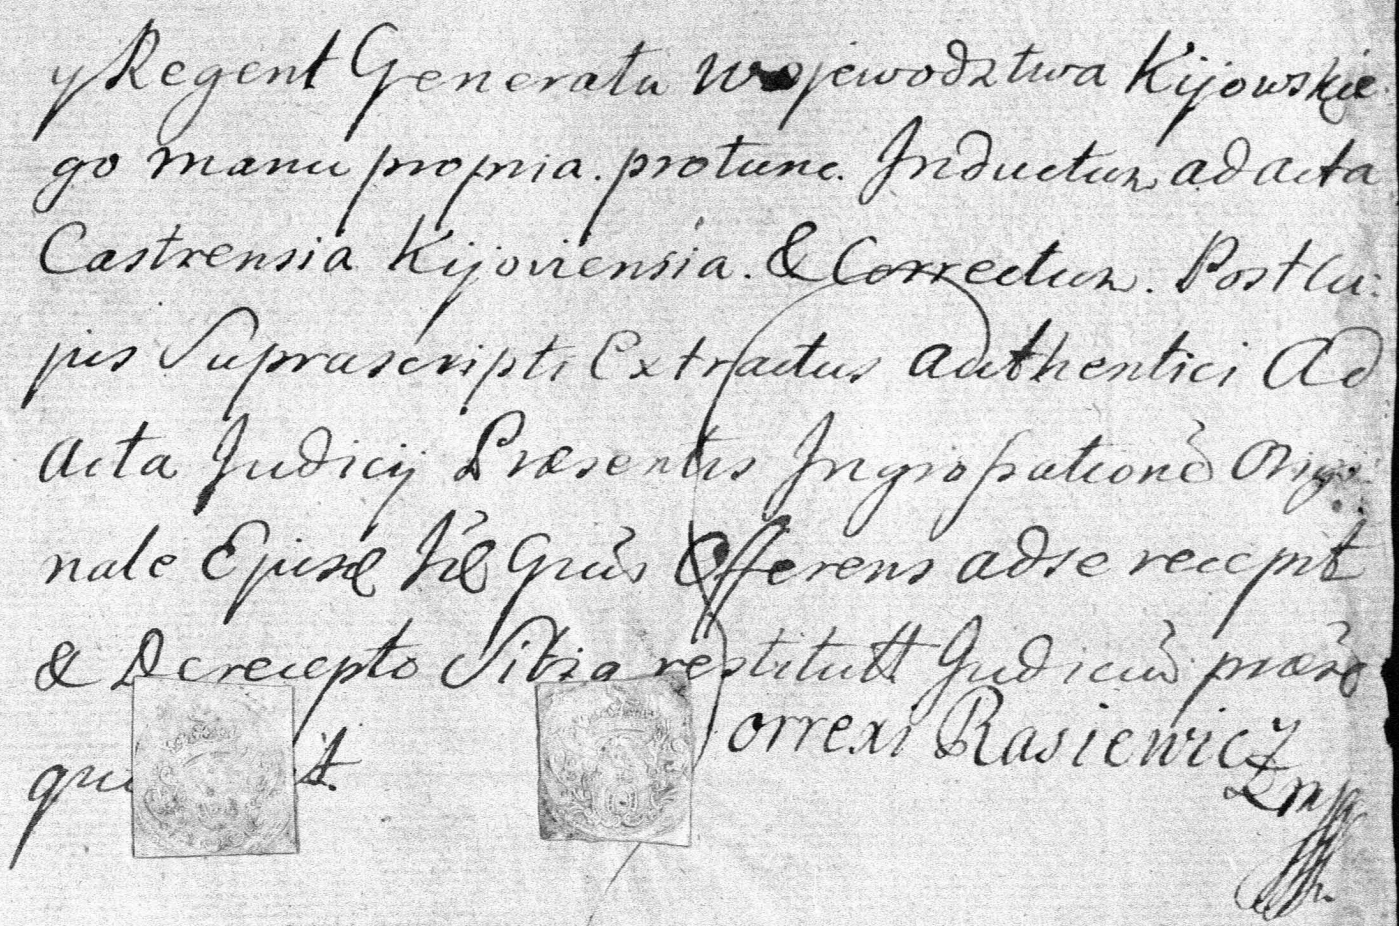 y Regent Generału Wojewodztwa Kijowskie
go manu propria. protunc. Inductum ad acta
Castrensia Kijoviensia. & Correctum. Post cu:
jus Suprascripti Extractus authentici Ad
acta Judicij Præsentis Ingrossationē Origi
nale Ejusd Offerens ad se recepit
& De recepto Sibi a restituit Judiciū præs
qui it.
Correxi Rasiewicz
mp